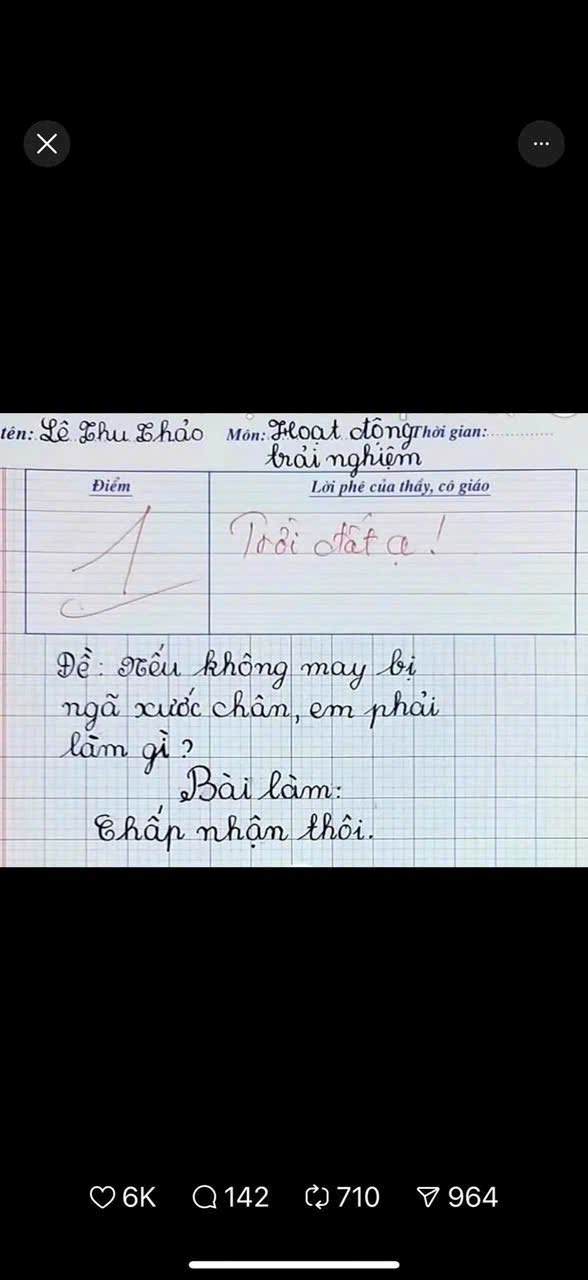 tên: Lê Thu Thảo Môn: Hoạt động Thời gian:
trải nghiệm
Điểm Lời phê của thầy, cô giáo
1 Trời đất ạ!
Đề: Nếu không may bị
ngã xước chân, em phải
làm gì?
Bài làm:
Chấp nhận thôi.
6K 142 710 964